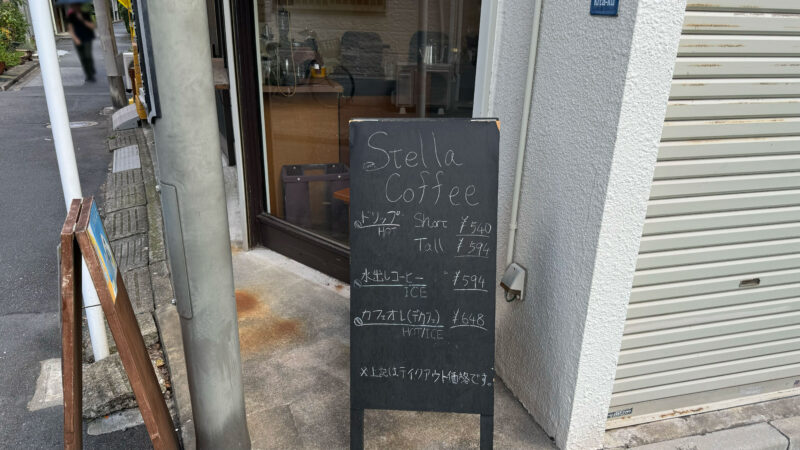 Kita-Ku
Stella
Coffee
ドリップ Short ¥540
HOT
Tall ¥594
水出しコーヒー ¥594
ICE
カフェオレ(デカフェ) ¥648
HOT/ICE
※上記はテイクアウト価格です。